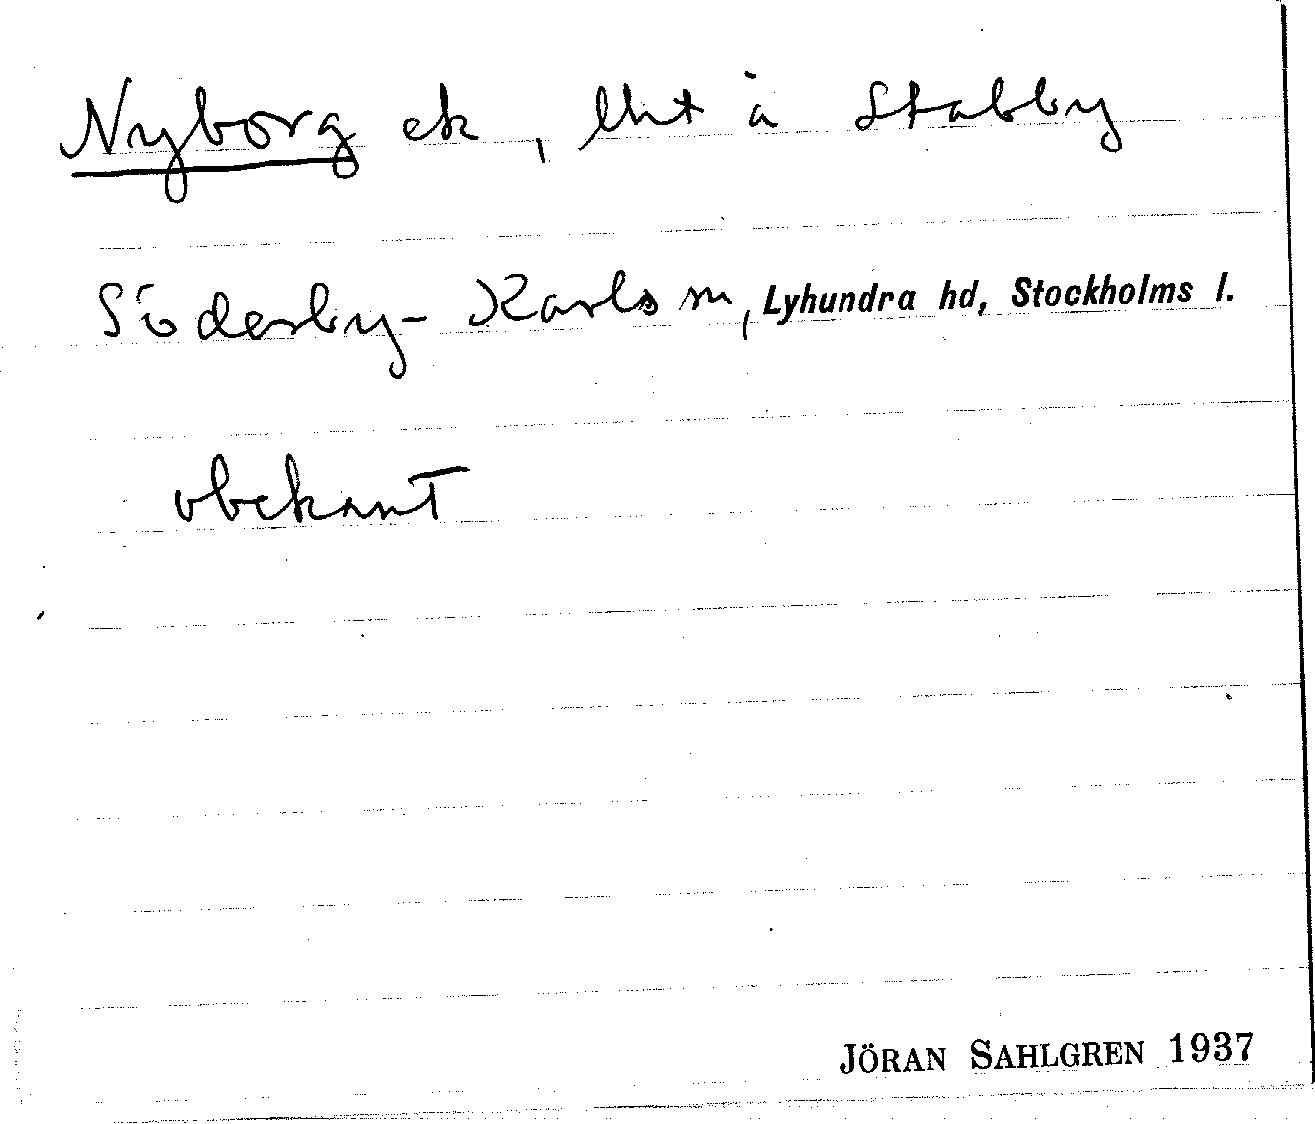 Nyborg ek, lht å Stabby
Söderby-Karls sn, Lyhundra hd, Stockholms l.
obekant
JÖRAN SAHLGREN 1937